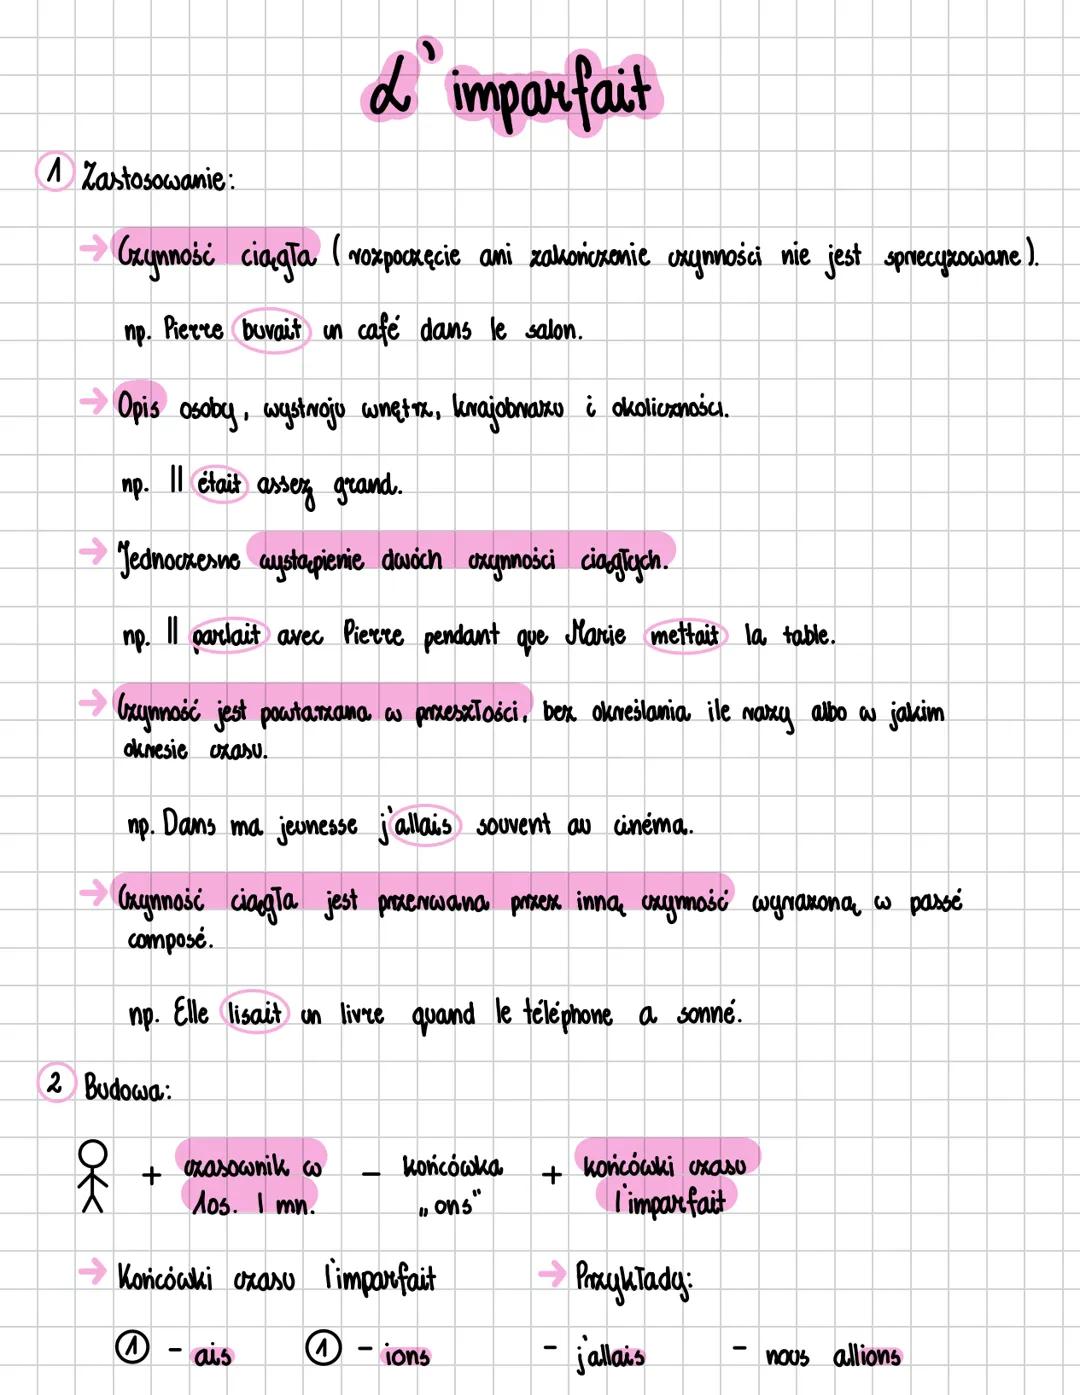 L'imparfait
1 Zastosowanie:
→ Czynność ciągła (rozpoczęcie ani zakończenie czynności nie jest sprecyzowane).
np. Pierre buvait un café dans le salon.
→ Opis osoby, wystroju wnętrz, krajobrazu i okoliczności.
np. Il était assez grand.
→ Jednoczesne wystąpienie dwóch czynności ciągłych.
np. Il parlait avec Pierre pendant que Marie mettait la table.
→ Czynność jest powtarzana w przeszłości, bez określania ile razy albo w jakim
okresie czasu.
np. Dans ma jeunesse j'allais souvent au cinéma.
→ Czynność ciągła jest przerwana przez inną czynność wyrażoną w passé
composé.
np. Elle lisait un livre quand le téléphone a sonné.
2 Budowa:
+ czasownik w – końcówka + końcówki czasu
1os. l mn. „ons" l'imparfait
→ Końcówki czasu l'imparfait → Przykłady:
1 - ais 1 - ions - j'allais - nous allions